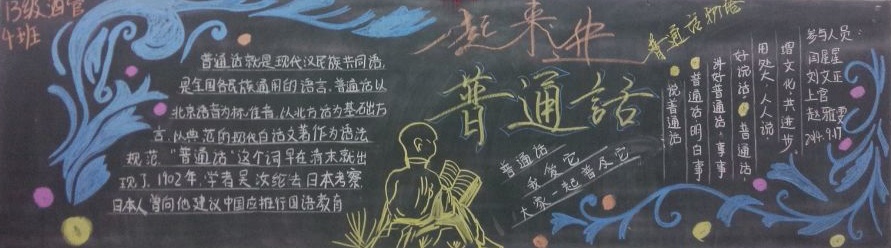 13级通管
4班
普通话就是现代汉民族共同语,
是全国各民族通用的语言。普通话以
北京语音为标准音,以北方话为基础方
言,以典范的现代白话文著作为语法
规范。“普通话”这个词早在清末就出
现了。1902年,学者吴汝纶去日本考察,
日本人曾向他建议中国应推行国语教育
一起来讲
普通話
普通话
我爱它
大家一起普及它
普通话初容
说普通话
普通话明白事
讲好普通话,事事
好说话。普通话,
用处大,人人说,
增文化共进步。
参与人员:
闫星星
刘文亚
上官
赵雅雯
2014.9.17